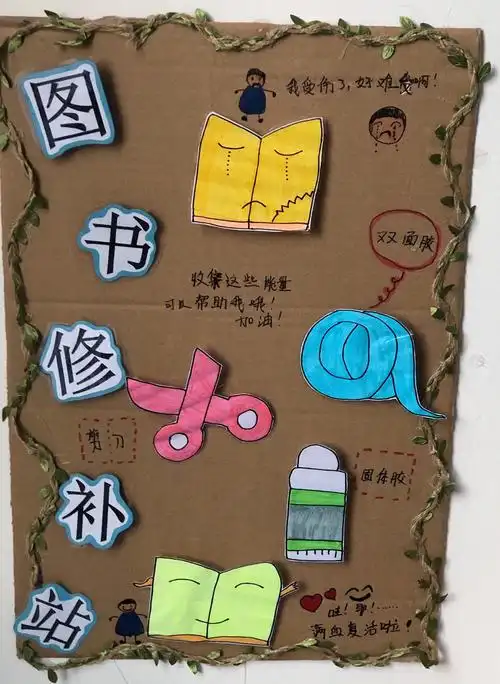 图书修补站
我受伤了，好难受啊！
双面胶
收集这些能量
可以帮助我哦！
加油！
剪刀
固体胶
哇！耶！……
满血复活啦！